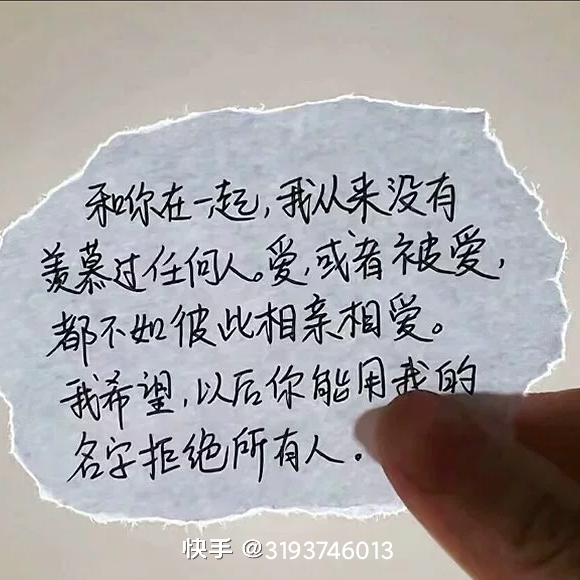 和你在一起,我从来没有
羡慕过任何人。爱,或者被爱,
都不如彼此相亲相爱。
我希望,以后你能用我的
名字拒绝所有人。
快手 @3193746013